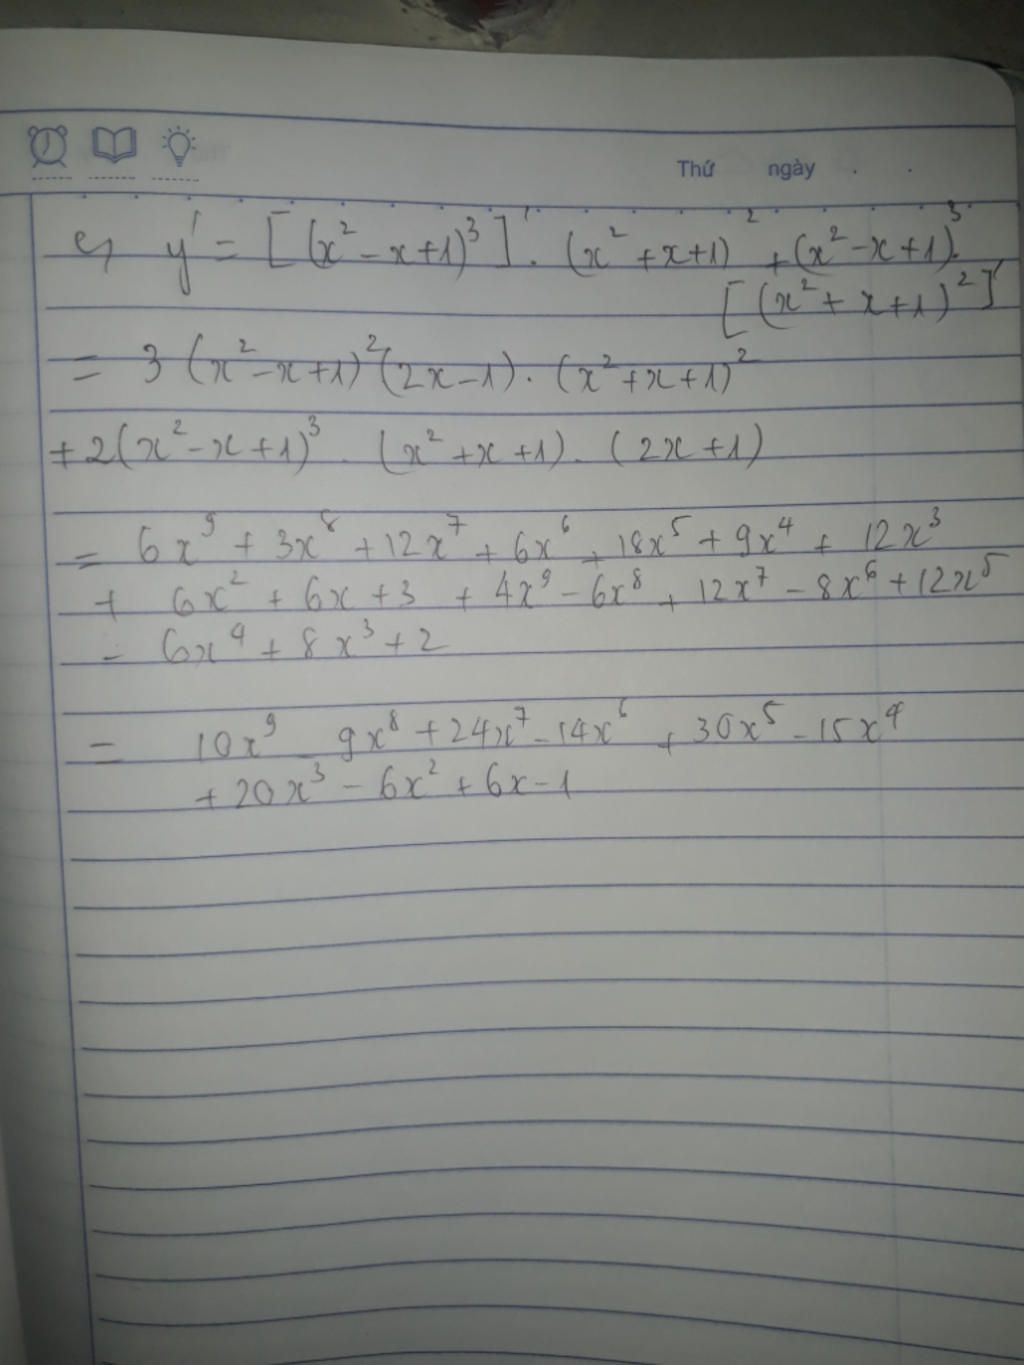 Thứ ngày
c, y' = [(x² - x + 1)³]' . (x² + x + 1)² + (x² - x + 1)³.
[(x² + x + 1)²]'
= 3 (x² - x + 1)² (2x - 1) . (x² + x + 1)²
+ 2(x² - x + 1)³ . (x² + x + 1) . (2x + 1)
= 6x⁹ + 3x⁸ + 12x⁷ + 6x⁶ + 18x⁵ + 9x⁴ + 12x³
+ 6x² + 6x + 3 + 4x⁹ - 6x⁸ + 12x⁷ - 8x⁶ + 12x⁵
- 6x⁴ + 8x³ + 2
= 10x⁹ - 9x⁸ + 24x⁷ - 14x⁶ + 30x⁵ - 15x⁴
+ 20x³ - 6x² + 6x - 1